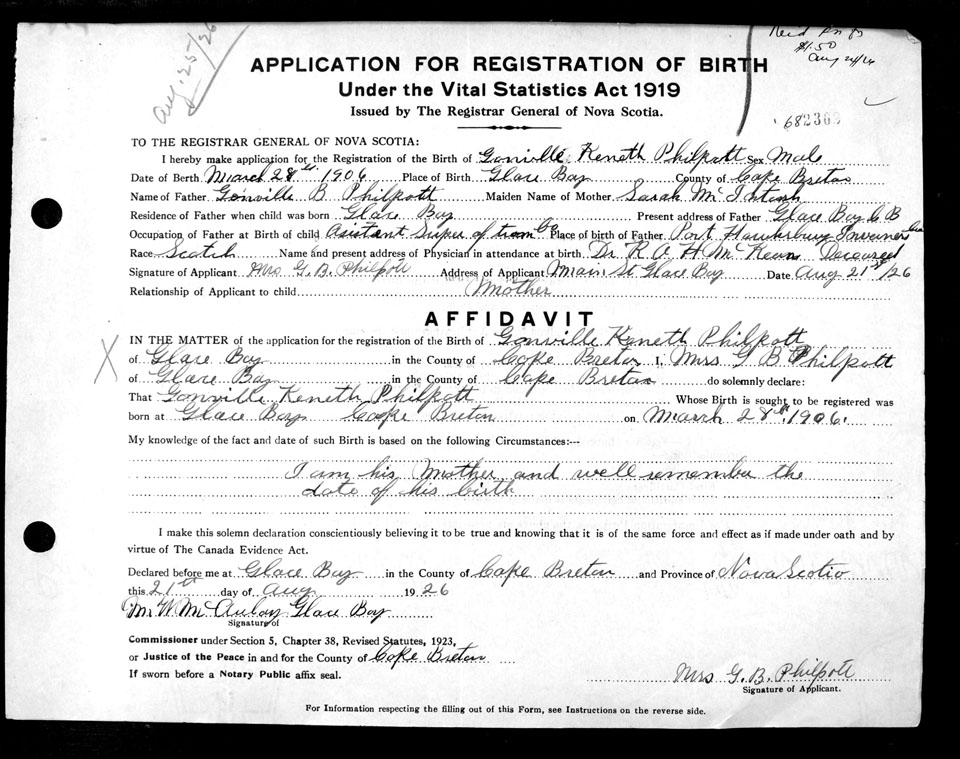 Aug. 25/26
$1.50
Aug 24/26
APPLICATION FOR REGISTRATION OF BIRTH
Under the Vital Statistics Act 1919
Issued by The Registrar General of Nova Scotia.
TO THE REGISTRAR GENERAL OF NOVA SCOTIA:
I hereby make application for the Registration of the Birth of Gonville Keneth Philpott Sex Male
Date of Birth March 28th 1906 Place of Birth Glace Bay County of Cape Breton
Name of Father Gonville B Philpott Maiden Name of Mother Sarah McIntosh
Residence of Father when child was born Glace Bay Present address of Father Glace Bay C B
Occupation of Father at Birth of child Asistant Super of tram Co Place of birth of Father Port Hawksbury Inverness
Race Scotch Name and present address of Physician in attendance at birth Dr R A H McKeen Deceased
Signature of Applicant Mrs G. B. Philpott Address of Applicant Main St Glace Bay Date Aug 21st/26
Relationship of Applicant to child Mother
AFFIDAVIT
X
IN THE MATTER of the application for the registration of the Birth of Gonville Keneth Philpott
of Glace Bay in the County of Cape Breton I, Mrs G B Philpott
of Glace Bay in the County of Cape Breton do solemnly declare:
That Gonville Keneth Philpott Whose Birth is sought to be registered was
born at Glace Bay Cape Breton on March 28th 1906.
My knowledge of the fact and date of such Birth is based on the following Circumstances:--
I am his Mother and well remember the
date of his birth
I make this solemn declaration conscientiously believing it to be true and knowing that it is of the same force and effect as if made under oath and by
virtue of The Canada Evidence Act.
Declared before me at Glace Bay in the County of Cape Breton and Province of Nova Scotia
this 21st day of Aug 1926
M W McAulay Glace Bay
Signature of
Commissioner under Section 5, Chapter 38, Revised Statutes, 1923,
or Justice of the Peace in and for the County of Cape Breton
If sworn before a Notary Public affix seal.
Mrs G. B. Philpott
Signature of Applicant.
For Information respecting the filling out of this Form, see Instructions on the reverse side.